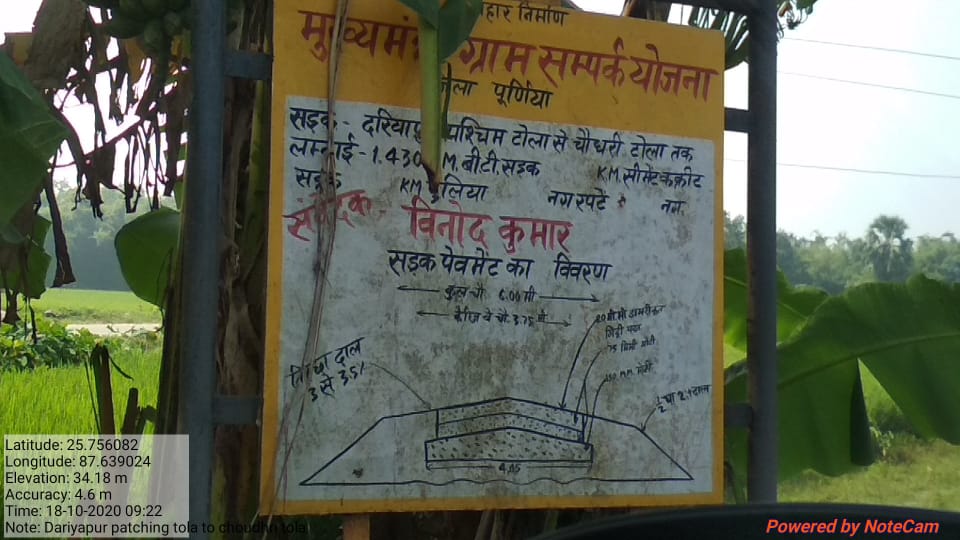 निर्माण
ग्राम सम्पर्क योजना
पूर्णिया
सड़क - पश्चिम टोला से चौधरी टोला तक
लम्बाई - 1.430 M. बी.टी. सड़क KM. सीमेंट कंक्रीट
सड़क KM पुलिया नग रपटें नग
संवेदक - विनोद कुमार
सड़क पेवमेंट का विवरण
कुल चौ. 6.00 मी
चौ. 3.75 मी.
75 मिमी मोटी
150 mm मोटी
ढाल
3 से 3.5%
4.05
Latitude: 25.756082
Longitude: 87.639024
Elevation: 34.18 m
Accuracy: 4.6 m
Time: 18-10-2020 09:22
Note: Dariyapur patching tola to choudhri tola
Powered by NoteCam